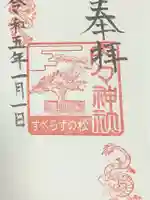 奉拝
神社
すべらずの松
令和五年一月一日